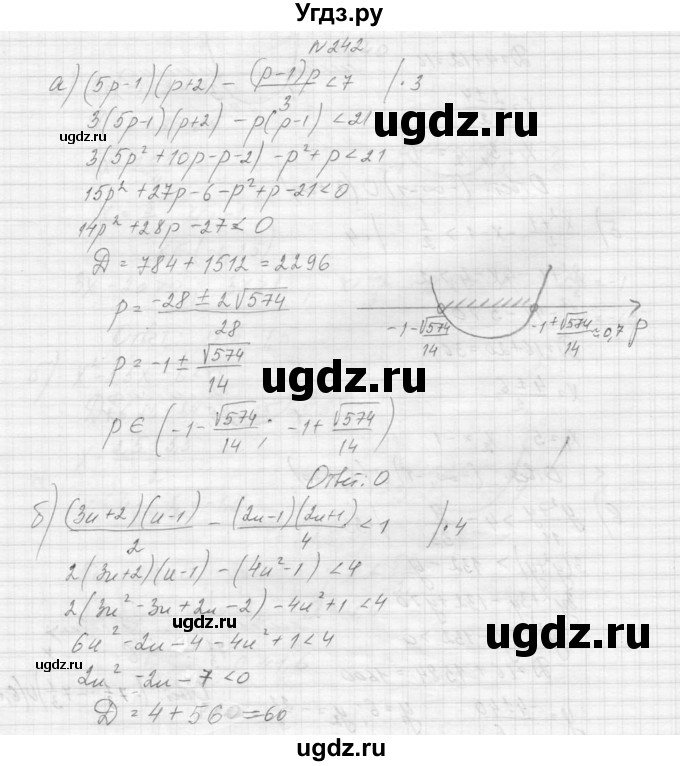 Угдз.ру
N 242
а) (5p-1)(p+2) - (p-1)p/3 < 7 /·3
3(5p-1)(p+2) - p(p-1) < 21
ugdz.ru
ugdz.ru
3(5p² + 10p - p - 2) - p² + p < 21
15p² + 27p - 6 - p² + p - 21 < 0
ugdz.ru
14p² + 28p - 27 < 0
D = 784 + 1512 = 2296
p = (-28 ± 2√574)/28
-1 - √574/14
-1 + √574/14 ≈ 0,7
p
p = -1 ± √574/14
ugdz.ru
p ∈ (-1 - √574/14; -1 + √574/14)
Ответ: 0
б) (3u+2)(u-1)/2 - (2u-1)(2u+1)/4 < 1 /·4
2(3u+2)(u-1) - (4u² - 1) < 4
2(3u² - 3u + 2u - 2) - 4u² + 1 < 4
ugdz.ru
ugdz.ru
6u² - 2u - 4 - 4u² + 1 < 4
ugdz.ru
2u² - 2u - 7 < 0
D = 4 + 56 = 60
ugdz.ru
ugdz.ru